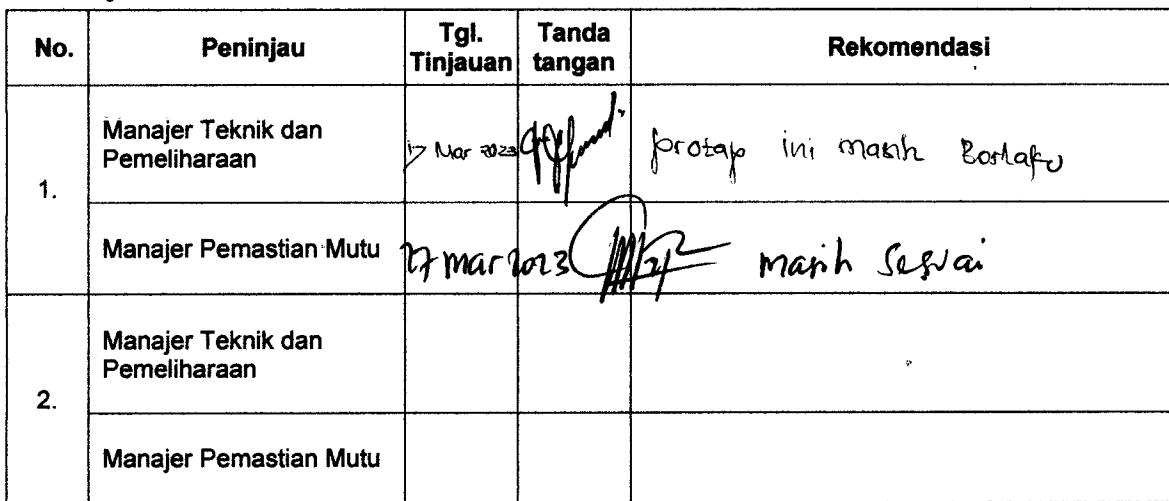 No. Peninjau Tgl. Tinjauan Tanda tangan Rekomendasi
1.
Manajer Teknik dan
Pemeliharaan
Mar 2023
protap ini masih berlaku
Manajer Pemastian Mutu 27 mar 2023 masih sesuai
2.
Manajer Teknik dan
Pemeliharaan
Manajer Pemastian Mutu